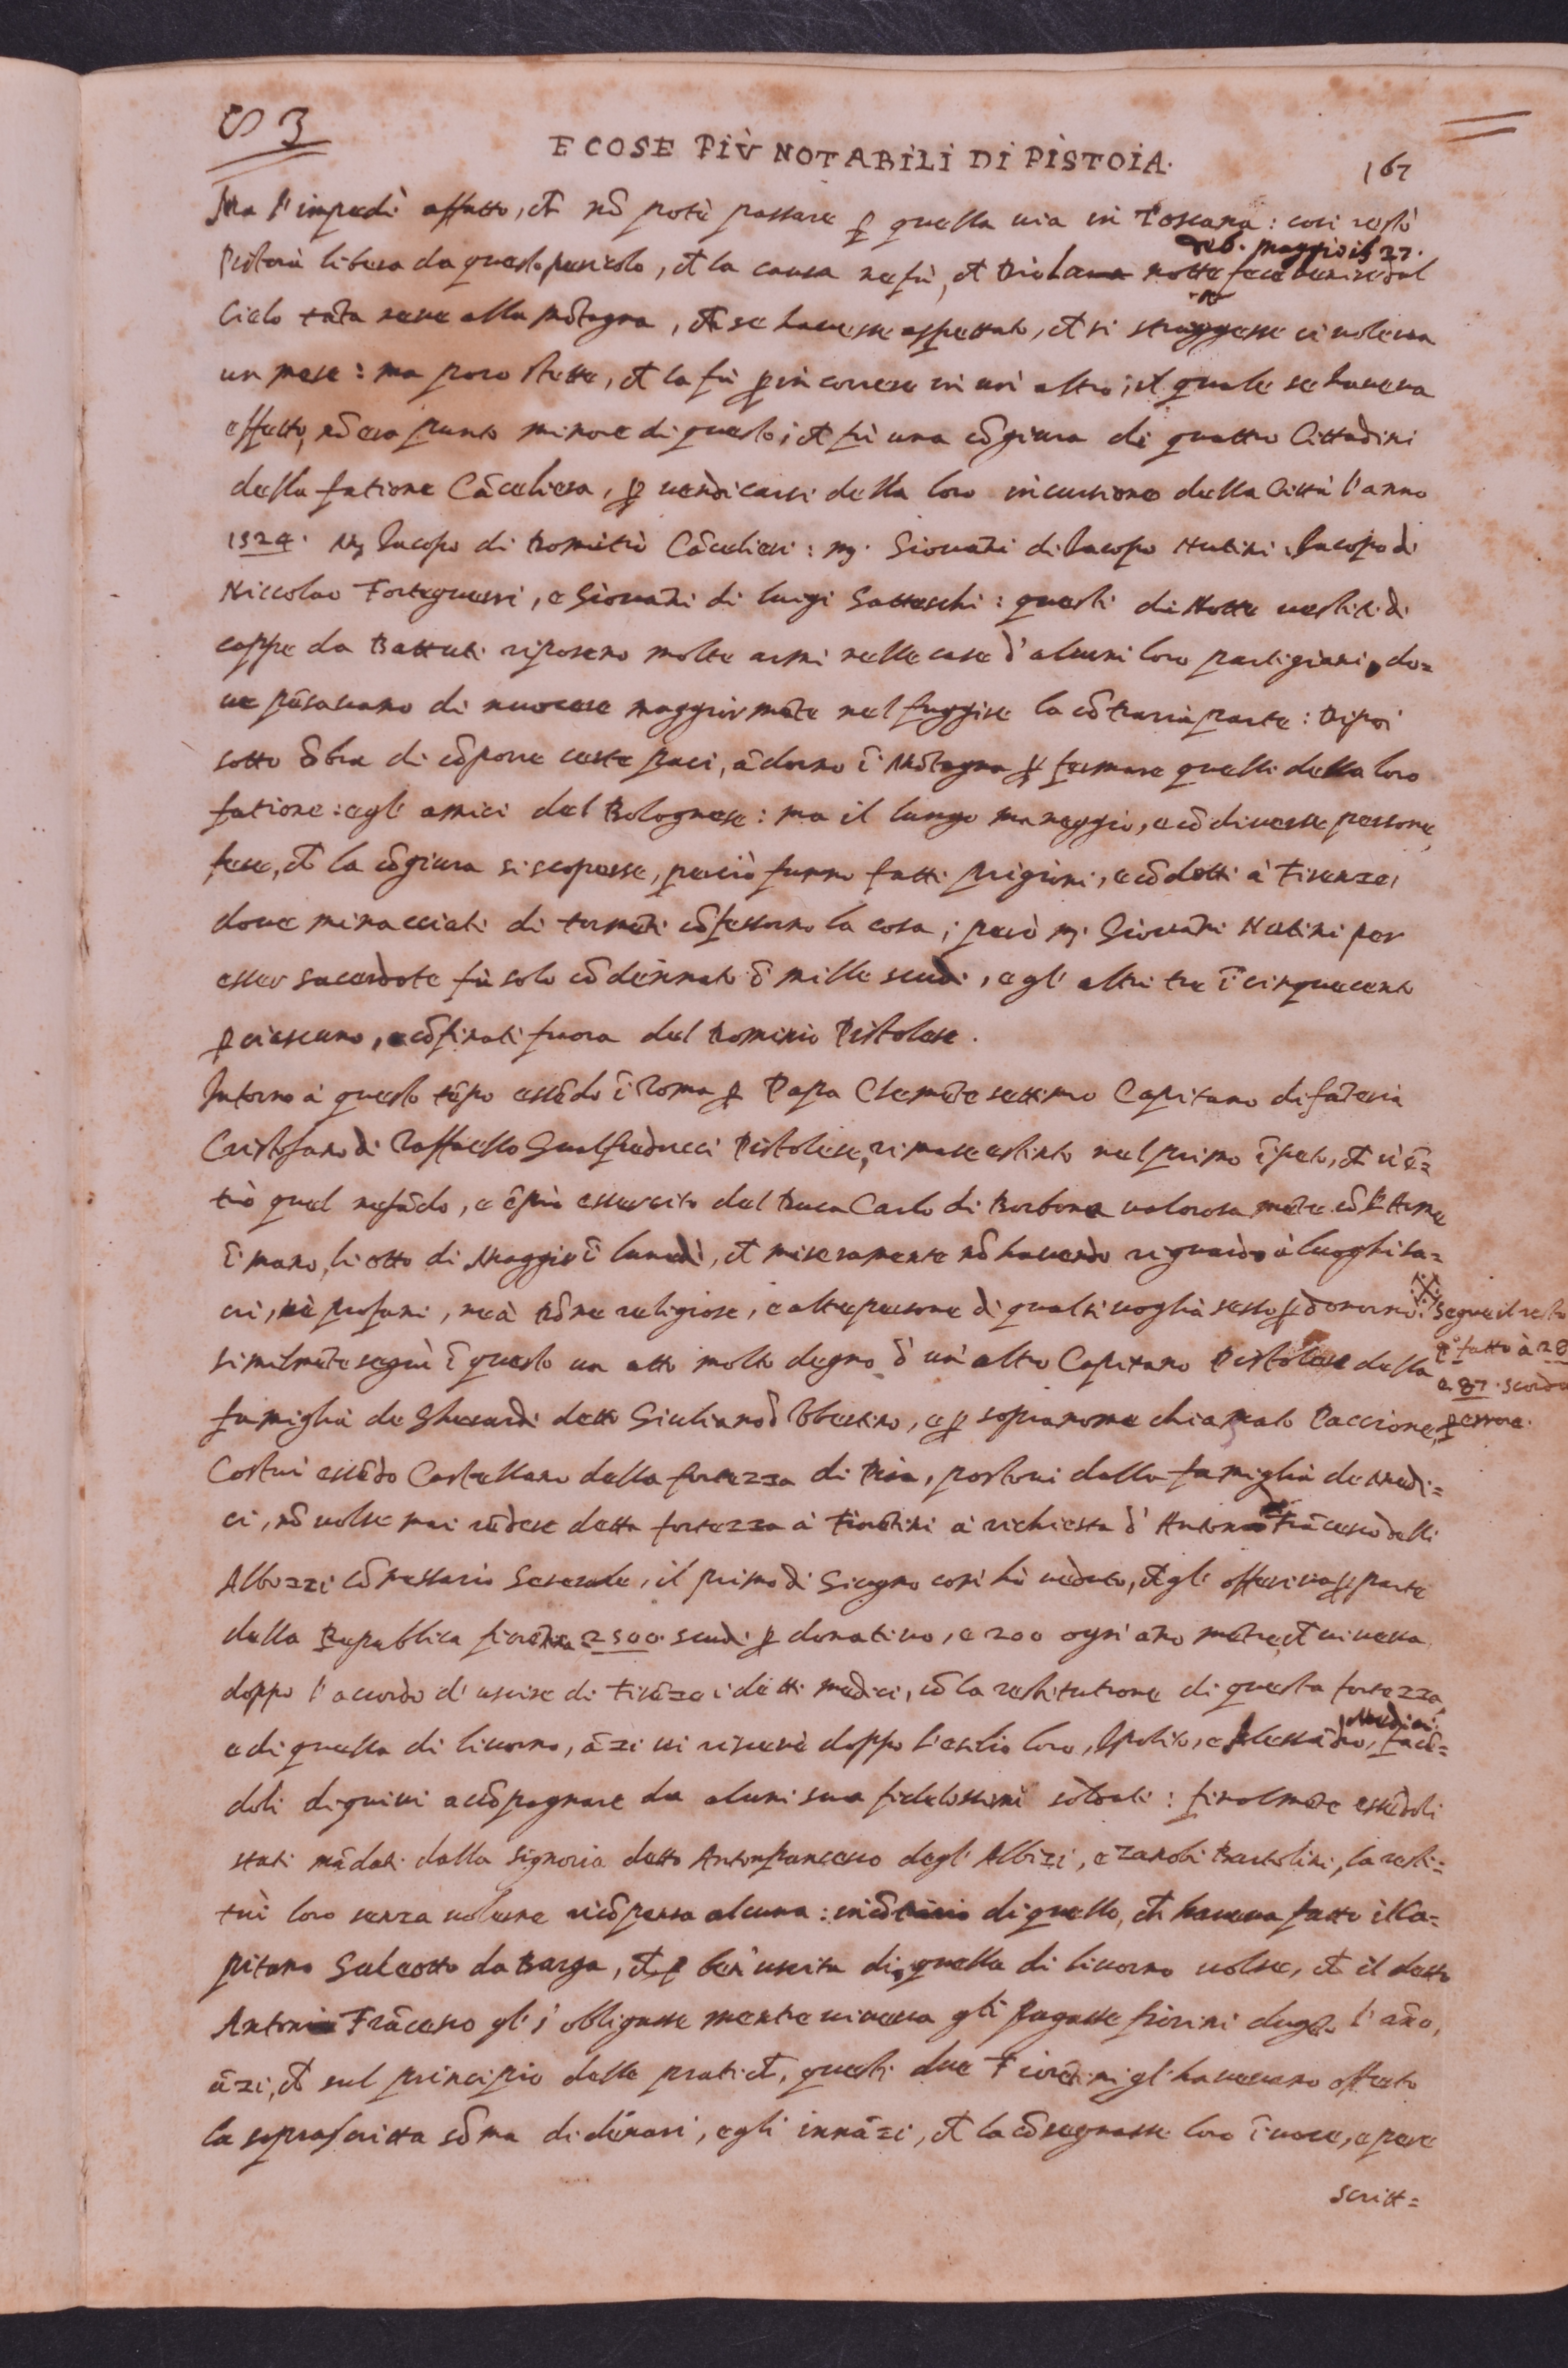 S 3
E COSE PIÙ NOTABILI DI PISTOIA.
167
Ma l'impedì affatto, ch nō potè passare p quella uia in Toscana: così restò
del. Maggio il 27.
Pistoia libera da questo pericolo, et la causa ne fù, ch Dio la notte fece uenire dal
Cielo tāta neue alla mōtagna, ch se hauesse aspettato, ch si struggesse ci uoleua
un mese: ma poco stette, ch la fù p incorrere in un' altro, il quale se haueua
effetto, nō era punto minore di questo; et fù una cōgiura di quattro Cittadini
della fatione Cācelliera, p uendicarsi della loro incursione della Città l'anno
1524. Mᵣ Iacopo di Domitio Cācelieri: mᵣ. Giouāni di Iacopo Nutini. Iacopo di
Niccolao Forteguerri, e Giouāni di luigi Gatteschi: questi di Notte uestiti di
cappe da Battuti riposeno molte armi nelle case d'alcuni loro partigiani, do=
ue pēsauano di nuocere maggiormēte nel fuggire la cōtraria parte: Dipoi
sotto ōbra di cōporre certe paci, ādorno ī Mōtagna p fermare quelli della loro
fatione: e gl' amici del Bolognese: ma il lungo maneggio, e cō diuerse persone,
fece, ch la cōgiura si scoperse, perciò furno fatti prigioni, e cōdotti à Firenze,
doue minacciati di tormēti cōfessorno la cosa; però mᵣ. Giouāni Nutini per
esser sacerdote fù solo cōdennato ī mille scudi, e gl' altri tre ī cinquecento
p ciascuno, e cōfinati fuora del Dominio Pistolese.
Intorno à questo tēpo essēdo ī Roma p Papa Clemēte settimo Capitano di fāteria
Cristofano di Raffaello Gualfreducci Pistolese, rimase estinto nel primo īpeto, ch ui ē=
trò quel nefādo, e ēpio essercito del Duca Carlo di Borbone ualorosamēte cō l'Arme
ī mano, li otto di Maggio ī lunedì, ch miseramente nō hauendo riguardo à luoghi sa=
cri, nè profani, ne à Dōne religiose, e altre persone di qualsiuoglia sesso pdonorno.
segue il resto
similmēte seguì ī questo un atto molto degno d' un' altro Capitano Pistolese della
fatto à 28
e 87. scorda
famiglia de Gherardi detto Giuliano d' Vbertino, e p sopranome chiamato Paccione,
p errore.
Costui essēdo Castellano della fortezza di Pisa, postoui dalla famiglia de Medi=
ci, nō uolse mai rēdere detta fortezza à Fiorētini à richiesta d' Antonio Frācesco delli
Albizzi cōmessario Generale, il primo di Giugno così hò ueduto, ch gli offeriua p parte
della Republica fiorētina 2500 scudi p donatiuo, e 200 ogni āno mētre, ch uiueua
doppo l'accordo d' uscire di Firēze i detti medici, cō la restitutione di questa fortezza,
Medici
e di quella di liuorno, āzi ui riceuè doppo l'esilio loro, Ipolito, e Alessādro, facē=
doli di quiui accōpagnare da alcuni sua fidelissimi soldati: finalmēte essēdoli
stati mādati dalla signoria detto Antonfrancesco degl' Albizi, e Zanobi Bartolini, la resti=
tuì loro senza uolerne ricōpensa alcuna: incōtrario di quello, ch haueua fatto il Ca=
pitano Galeotto da Barga, ch p ben' uscita di quella di liuorno uolse, ch il detto
Antonio Frācesco gl' s' obligasse mentre uiueua gli pagasse fiorini dugēto l' āno,
āzi, ch sul principio delle pratich, questi due Fiorētini gl' haueuano offerto
la soprascritta sōma di denari, e gli innāzi, ch la cōsegnasse loro ī uoce, e pere
scritt=